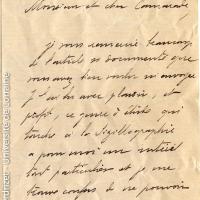 Monsieur et cher Camarade,
je vous remercie beaucoup
de l'article et documents que
vous avez bien voulu m'envoyer
je l'ai lu avec plaisir, et
ce genre d'études qui
touche à la Sigillographie
a pour moi un intérêt
tout particulier et je me
trouve confus de ne pouvoir
Université de Lorraine